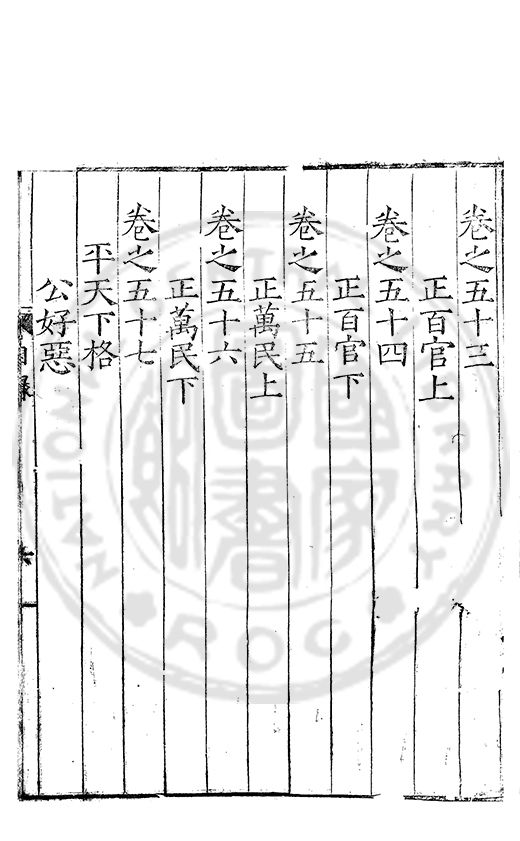 卷之五十三
正百官上
卷之五十四
正百官下
卷之五十五
正萬民上
卷之五十六
正萬民下
卷之五十七
平天下格
公好惡
目錄
六